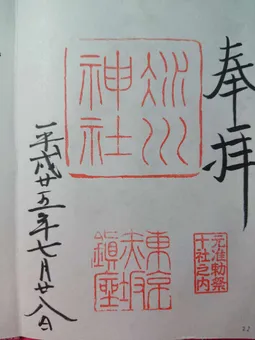 奉拝
氷川
神社
元准勅祭
十社之内
東京
赤坂
鎮座
平成廿五年七月廿八日